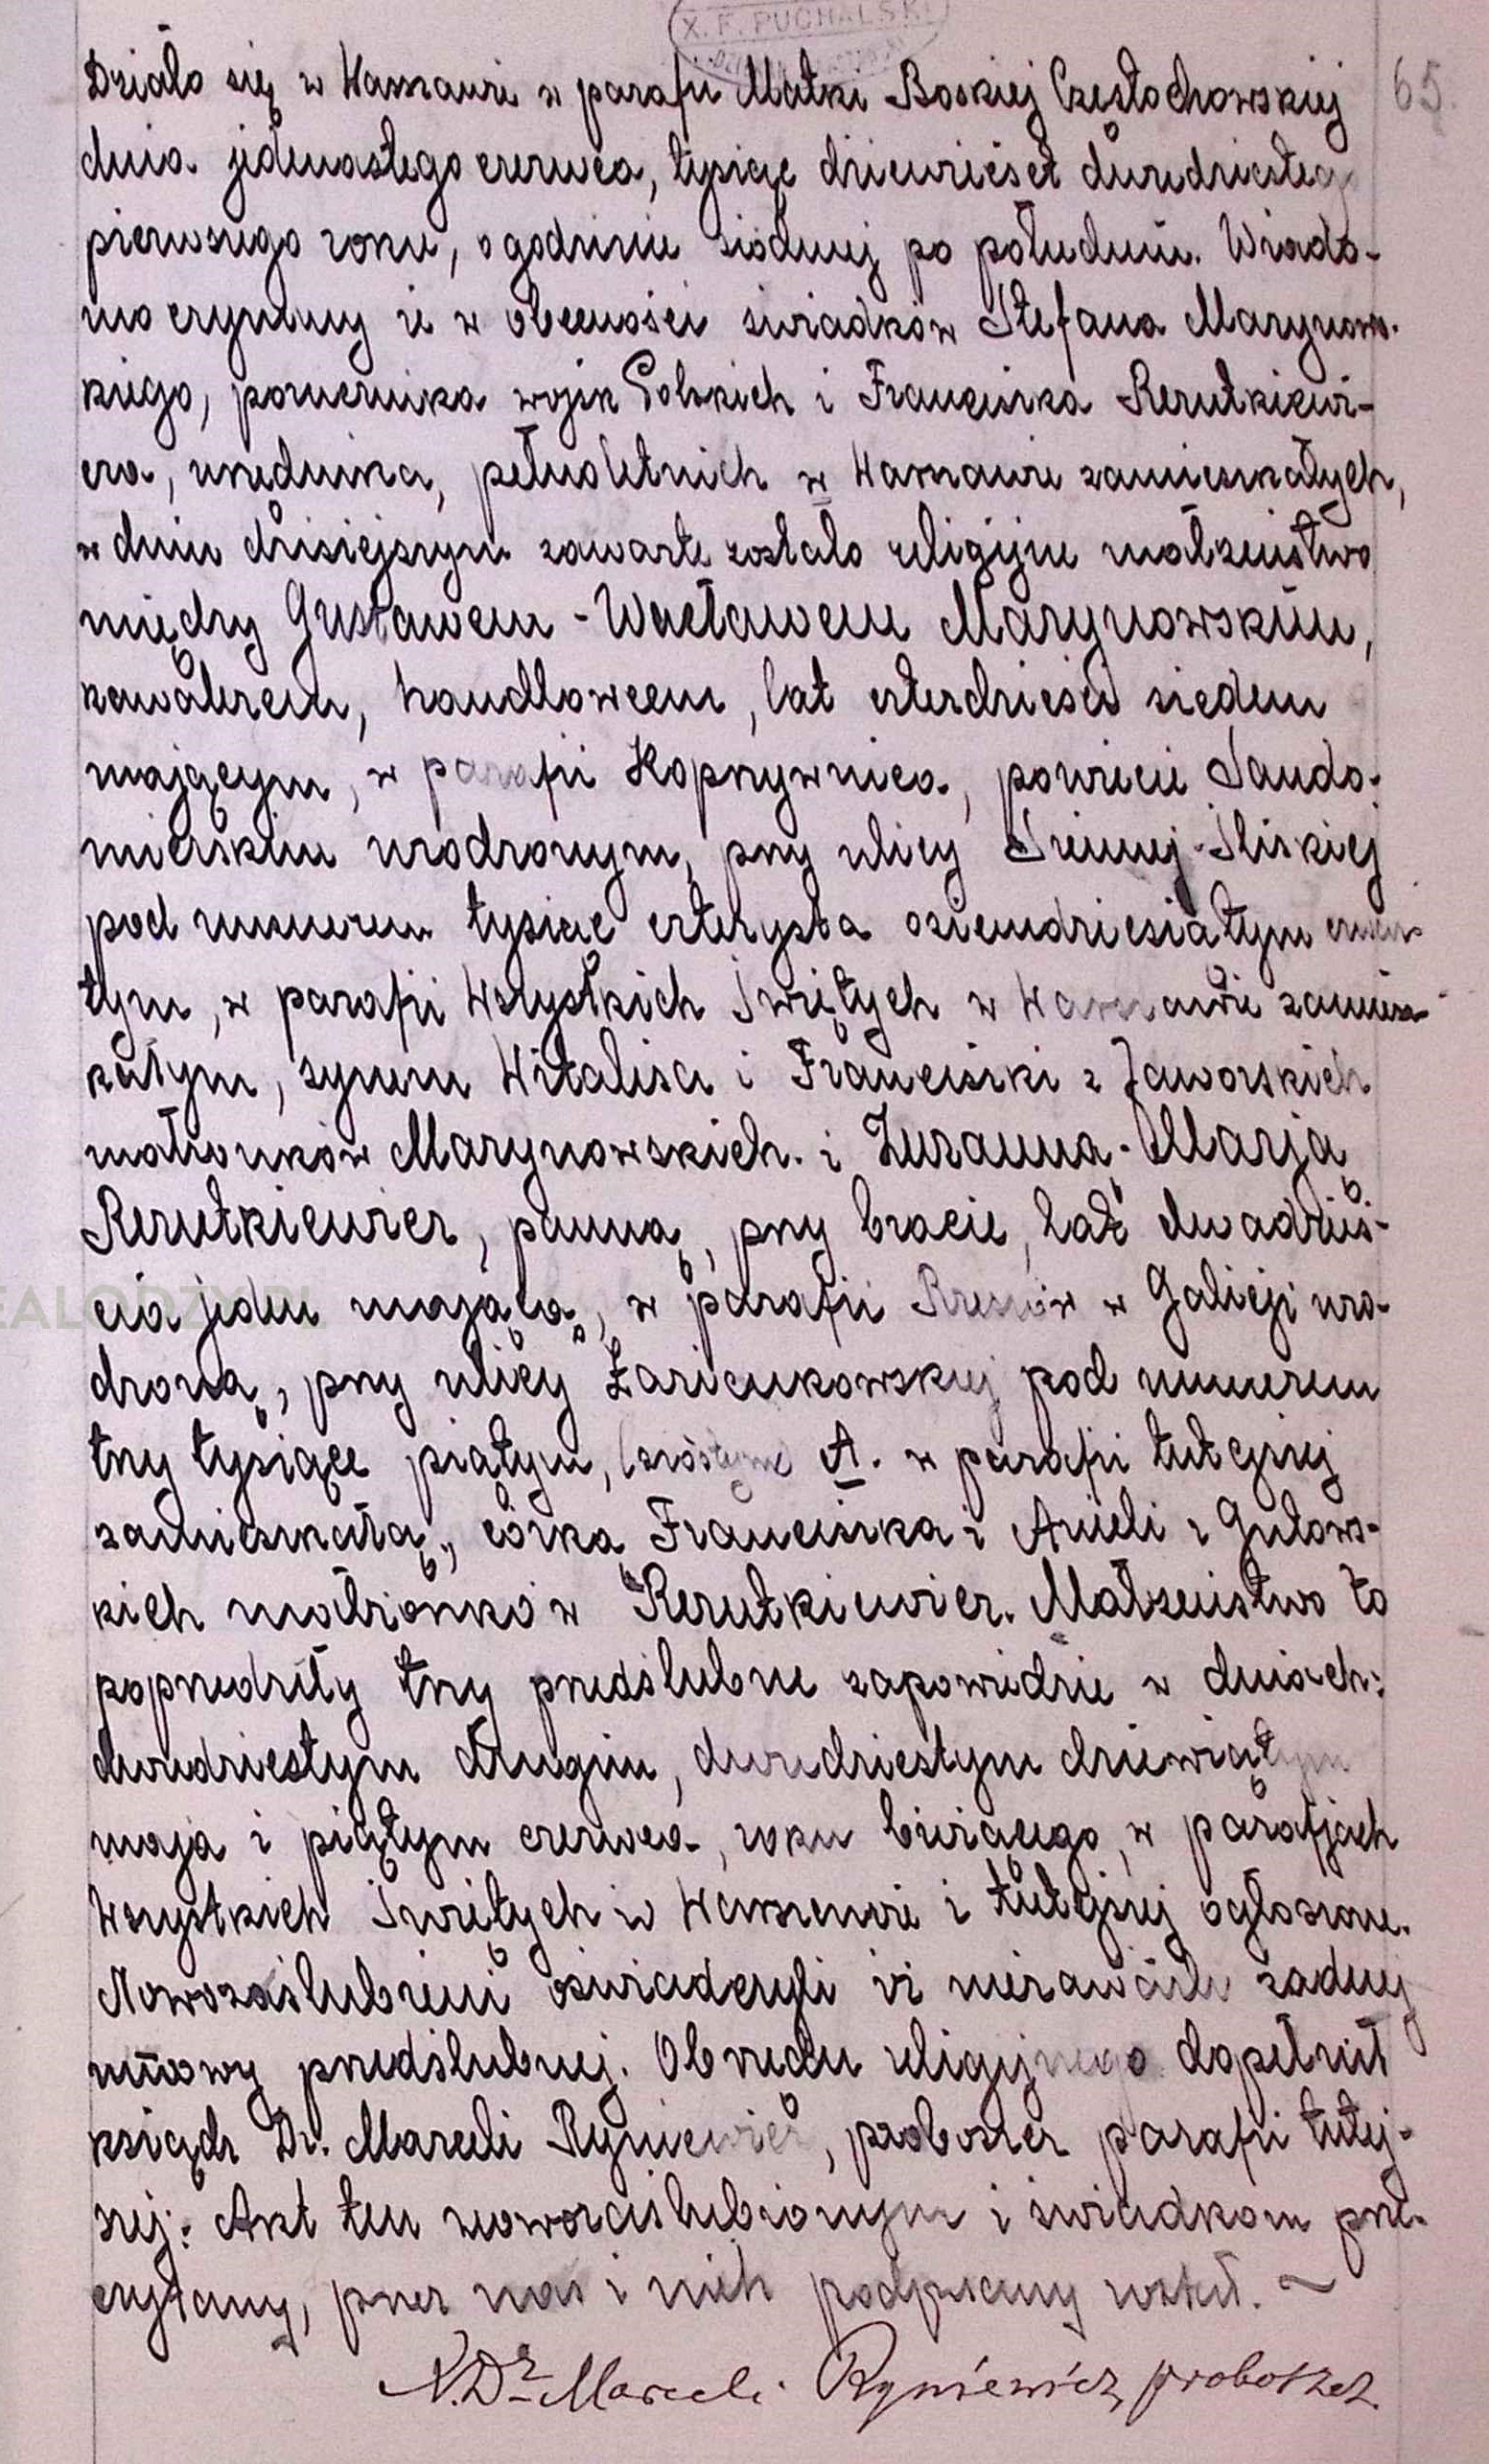 X. F. PUCHALSKI
65.
Działo się w Warszawie w parafii Matki Boskiej Częstochowskiej
dnia jedenastego czerwca, tysiąc dziewięćset dwudziestego
pierwszego roku, o godzinie siódmej po południu. Wiado-
mo czynimy że w obecności świadków Stefana Marynows-
kiego, porucznika wojsk Polskich i Franciszka Rerutkiewi-
cza, urzędnika, pełnoletnich w Warszawie zamieszkałych,
w dniu dzisiejszym zawarte zostało religijne małżeństwo
między Gustawem - Wacławem Marynowskim,
kawalerem, handlowcem, lat czterdzieści siedem
mającym, w parafii Koprzywnica, powiecie Sando-
mierskim urodzonym, przy ulicy Siennej-Śliskiej
pod numerem tysiąc czterysta osiemdziesiątym czwar-
tym, w parafii Wszystkich Świętych w Warszawie zamiesz-
kałym, synem Witalisa i Franciszki z Jaworskich
małżonków Marynowskich. i Zuzanną-Marją
Rerutkiewicz, panną, przy bracie, lat dwadzieś-
cia jeden mającą, w parafii Rzeszów w Galicji uro-
dzoną, przy ulicy Łazienkowskiej pod numerem
trzy tysiące piątym, (szóstym) A. w parafii tutejszej
zamieszkałą, córką Franciszka i Anieli z Gutows-
kich małżonków Rerutkiewicz. Małżeństwo to
poprzedziły trzy przedślubne zapowiedzie w dniach:
dwudziestym drugim, dwudziestym dziewiątym
maja i piątym czerwca, roku bieżącego, w parafjach
Wszystkich Świętych w Warszawie i tutejszej ogłoszone.
Nowozaślubieni oświadczyli iż niezawarli żadnej
umowy przedślubnej. Obrzędu religijnego dopełnił
ksiądz Dr. Marceli Ryniewicz, proboszcz parafii tutej-
szej. Akt ten nowozaślubionym i świadkom prze-
czytany, przez nas i nich podpisany został. ~
X. Dr Marceli Ryniewicz proboszcz.